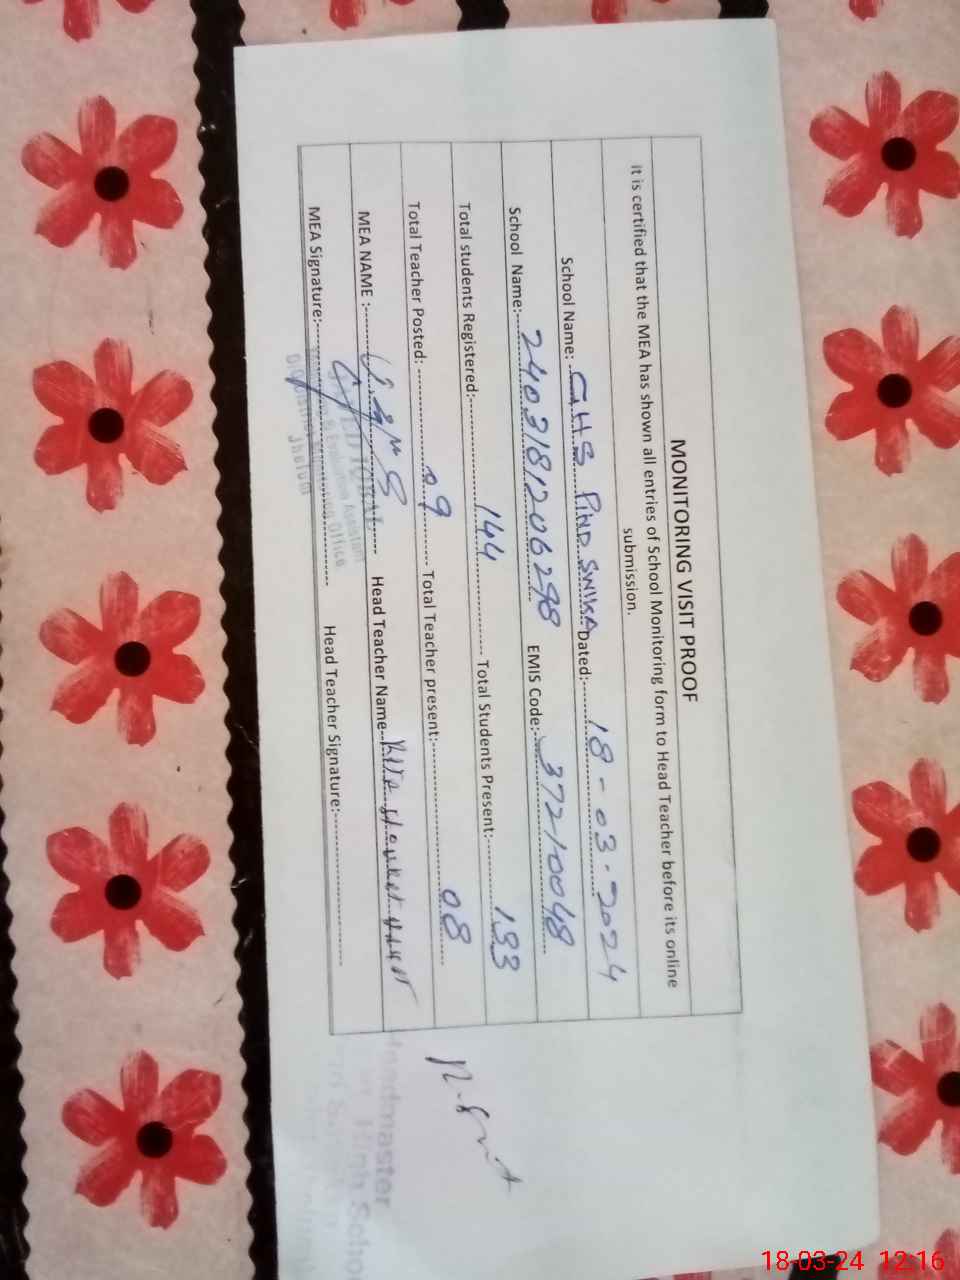 MONITORING VISIT PROOF
It is certified that the MEA has shown all entries of School Monitoring form to Head Teacher before its online
submission.
School Name: GHS PIND SWIKA Dated: 18-03-2024
School Name: 2403181206298 EMIS Code: 37210048
Total students Registered: 144 Total Students Present: 133
Total Teacher Posted: 09 Total Teacher present: 08
MEA NAME : Head Teacher Name
MEA Signature: Head Teacher Signature:
Evaluation Assistant
Office
Jhelum
Headmaster
High School
18-03-24 12:16